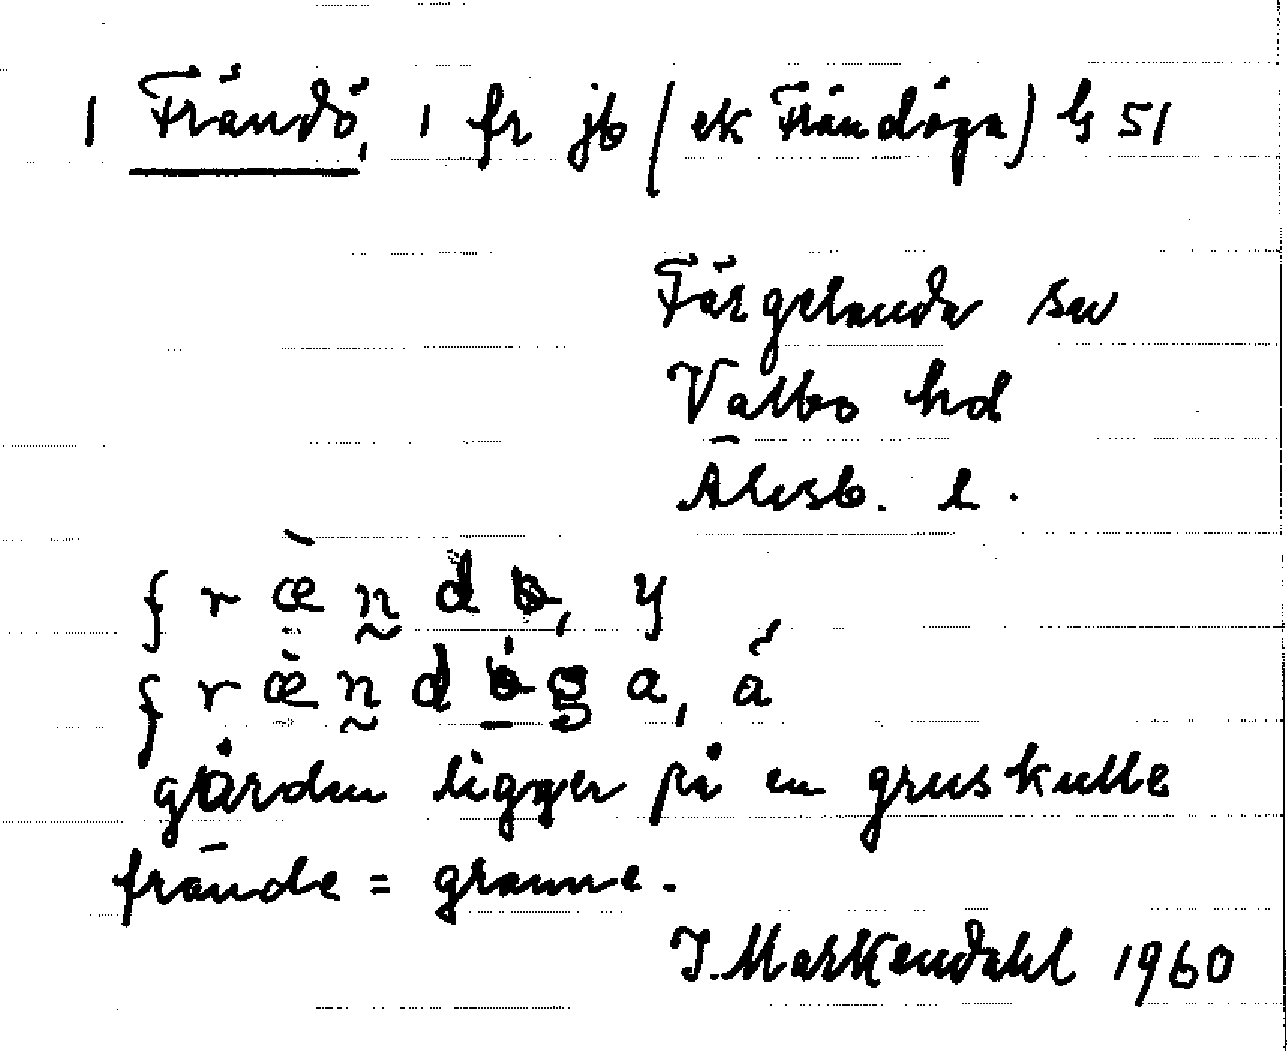 1 Frändö, 1 fr jb (ek Frändöga) h 51
Färgelanda sn
Valbo hd
Älvsb. l.
f r æ̀ n d ö, y
f r æ̀ n d ö g a, á
gården ligger på en gruskulle
frände = granne.
J. Markendahl 1960